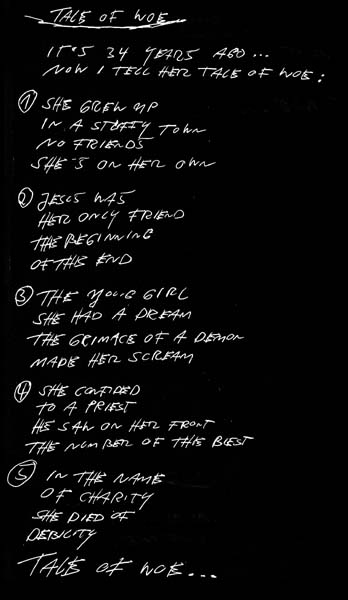 TALE OF WOE
IT'S 34 YEARS AGO...
NOW I TELL HER TALE OF WOE:
① SHE GREW UP
IN A STUFFY TOWN
NO FRIENDS
SHE'S ON HER OWN
② JESUS WAS
HER ONLY FRIEND
THE BEGINNING
OF THE END
③ THE YOUNG GIRL
SHE HAD A DREAM
THE GRIMACE OF A DEMON
MADE HER SCREAM
④ SHE CONFIDED
TO A PRIEST
HE SAW ON HER FRONT
THE NUMBER OF THE BEEST
⑤ IN THE NAME
OF CHARITY
SHE DIED OF
DEBILITY
TALE OF WOE...